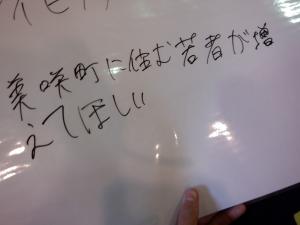 美咲町に住む若者が増
えてほしい